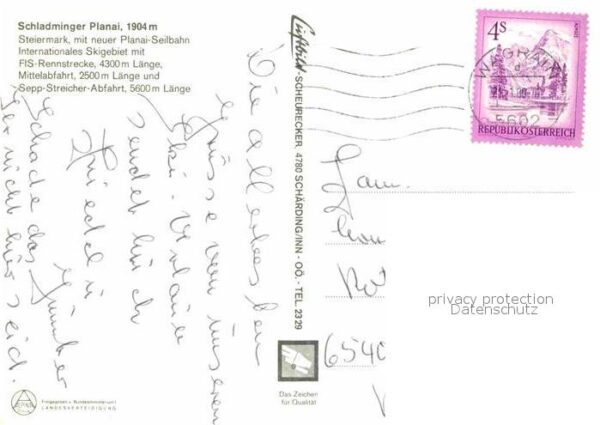 Schladminger Planai, 1904 m
Steiermark, mit neuer Planai-Seilbahn
Internationales Skigebiet mit
FIS-Rennstrecke, 4300 m Länge,
Mittelabfahrt, 2500 m Länge und
Sepp-Streicher-Abfahrt, 5600 m Länge
Die allerbesten
Grüsse von unserem
Ski Urlaub
sendet euch
Schade das
ihr nicht hier seid.
Freigegeben v. Bundesministerium f.
LANDESVERTEIDIGUNG
Luftbild SCHEURECKER, 4780 SCHÄRDING/INN - OÖ. - TEL. 23 29
Das Zeichen
für Qualität
4S
WAGRAIN
5602
REPUBLIK ÖSTERREICH
Fam.
654
privacy protection
Datenschutz